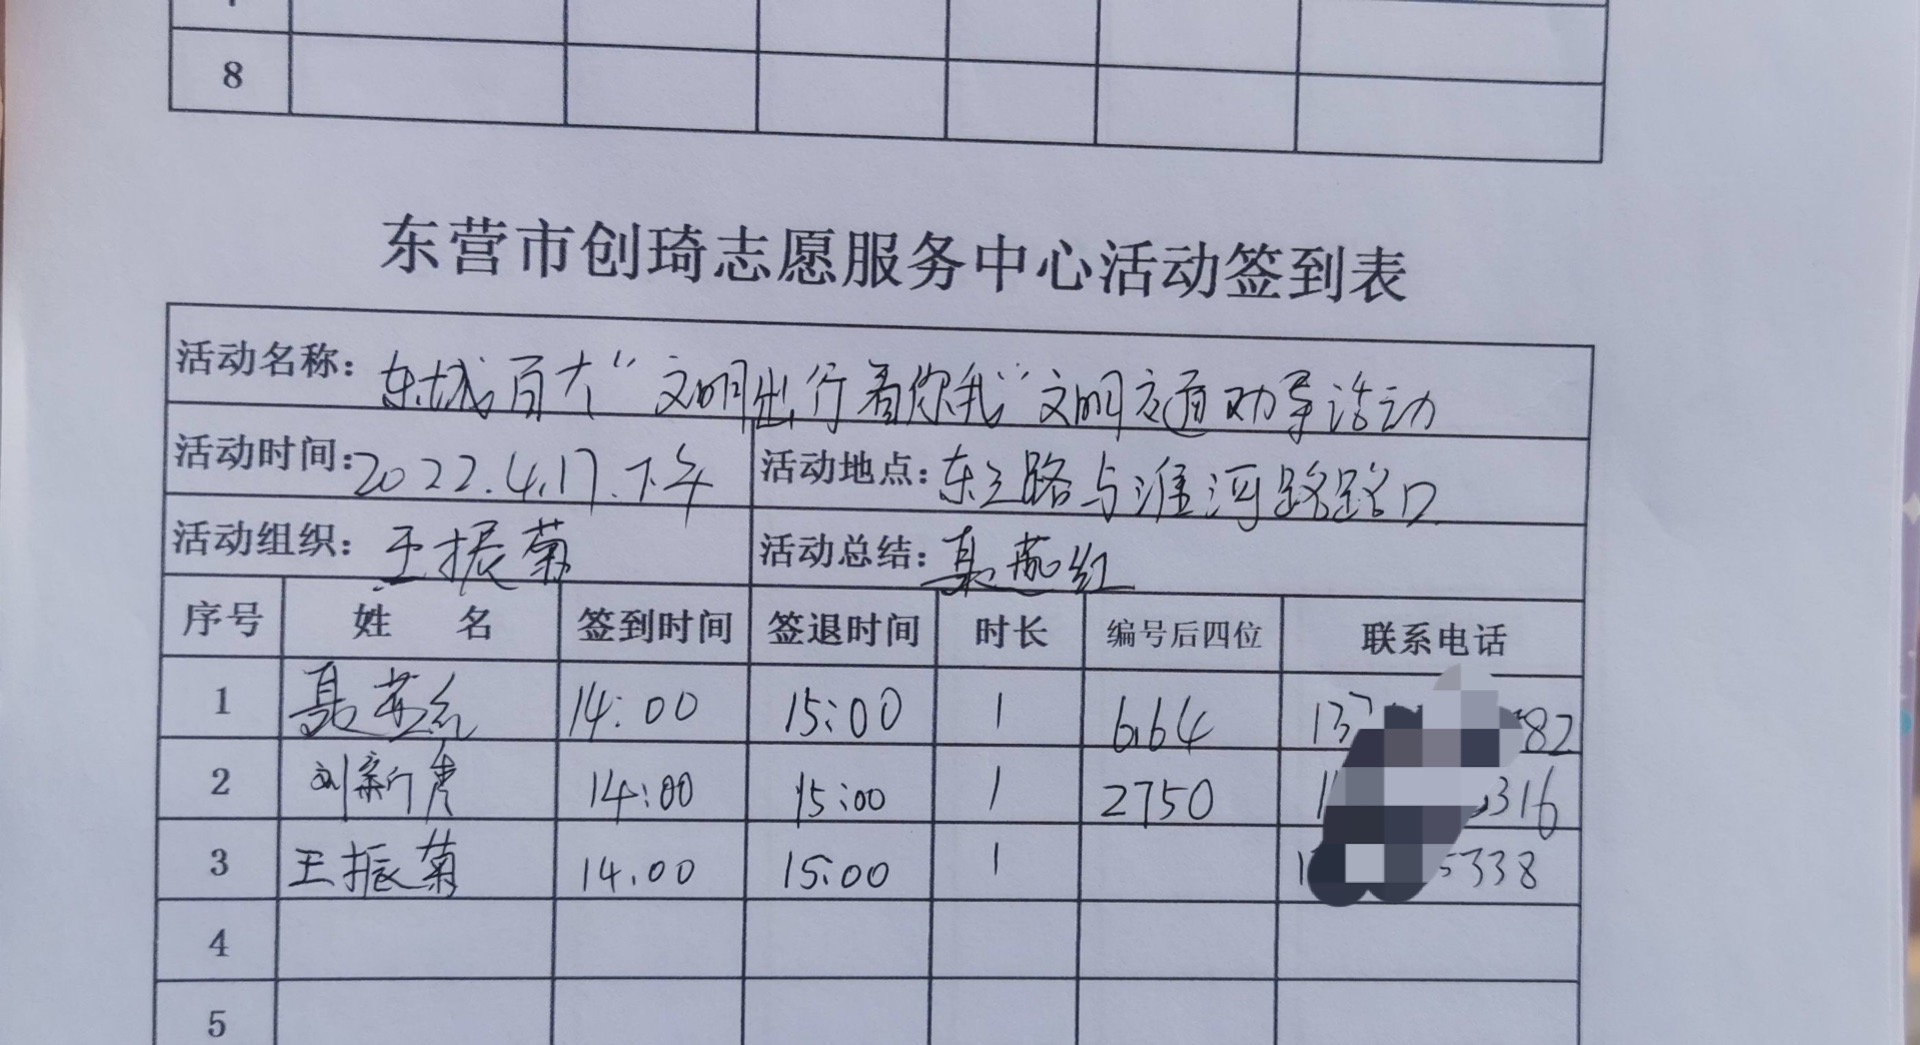 8
东营市创琦志愿服务中心活动签到表
活动名称：东城百大“文明出行看你我”文明交通劝导活动
活动时间：2022.4.17.下午 活动地点：东三路与淮河路路口
活动组织：王振菊 活动总结：聂茹红
序号 姓 名 签到时间 签退时间 时长 编号后四位 联系电话
1 聂茹红 14:00 15:00 1 6664 137 82
2 刘新 14:00 15:00 1 2750 1 316
3 王振菊 14.00 15:00 1 1 5338
4
5